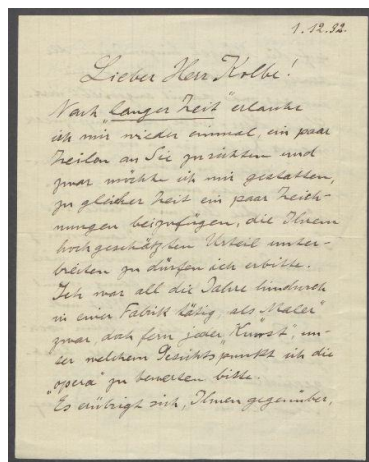 1.12.32.
Lieber Herr Kolbe!
Nach „langer Zeit" erlaube
ich mir wieder einmal, ein paar
Zeilen an Sie zu richten und
zwar möchte ich mir gestatten,
zu gleicher Zeit ein paar Zeich-
nungen beizufügen, die Ihrem
hochgeschätzten Urteil unter-
breiten zu dürfen ich erbitte.
Ich war all die Jahre hindurch
in einer Fabrik tätig als „Maler"
zwar, doch fern jeder „Kunst", un-
ter welchem Gesichtspunkt ich die
„opera" zu bewerten bitte.
Es erübrigt sich, Ihnen gegenüber,